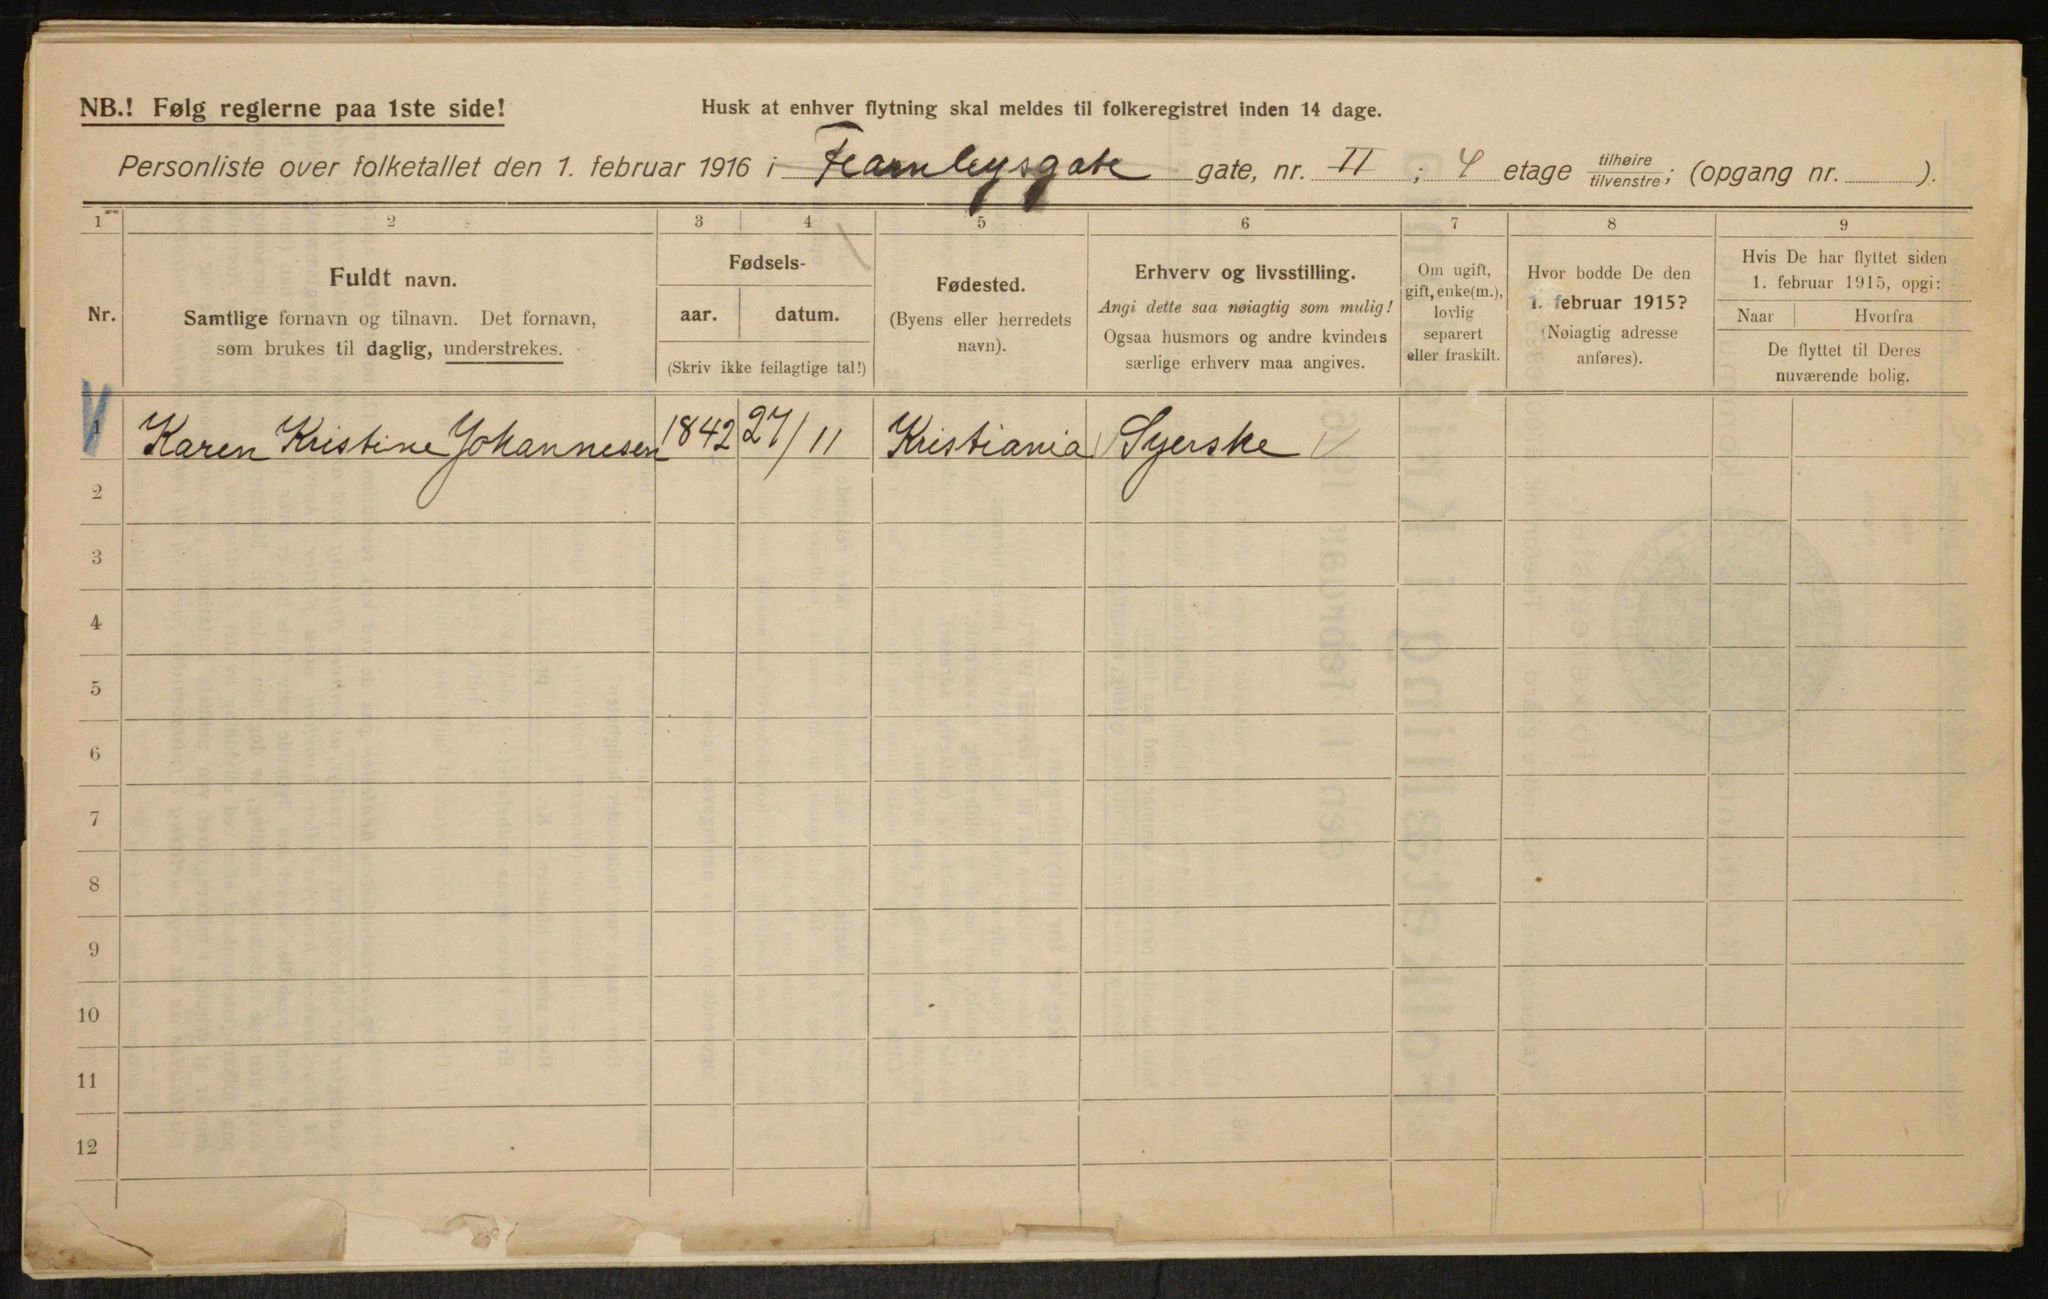 NB.! Følg reglerne paa 1ste side!
Husk at enhver flytning skal meldes til folkeregistret inden 14 dage.
Personliste over folketallet den 1. februar 1916 i Fearnleysgate gate, nr. II ; 4 etage tilhøire/tilvenstre; (opgang nr. ).
1 2 3 4 5 6 7 8 9
Nr.
Fuldt navn.
Samtlige fornavn og tilnavn. Det fornavn,
som brukes til daglig, understrekes.
Fødsels-
aar. datum.
(Skriv ikke feilagtige tal!)
Fødested.
(Byens eller herredets
navn).
Erhverv og livsstilling.
Angi dette saa nøiagtig som mulig!
Ogsaa husmors og andre kvinders
særlige erhverv maa angives.
Om ugift,
gift, enke(m.),
lovlig
separert
eller fraskilt.
Hvor bodde De den
1. februar 1915?
(Nøiagtig adresse
anføres).
Hvis De har flyttet siden
1. februar 1915, opgi:
Naar Hvorfra
De flyttet til Deres
nuværende bolig.
1 Karen Kristine Johannesen 1842 27/11 Kristiania Syerske
2
3
4
5
6
7
8
9
10
11
12